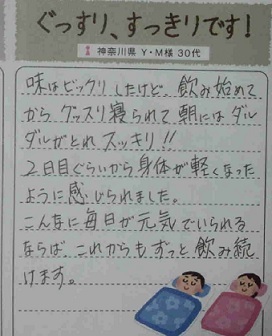 ぐっすり、すっきりです!
神奈川県 Y・M様 30代
味はビックリしたけど、飲み始めて
から グッスリ寝られて 朝には ダル
ダルがとれ スッキリ!!
2日目ぐらいから身体が軽くなった
ように感じられました。
こんなに毎日が元気でいられる
ならば、これからもずっと飲み続
けます。